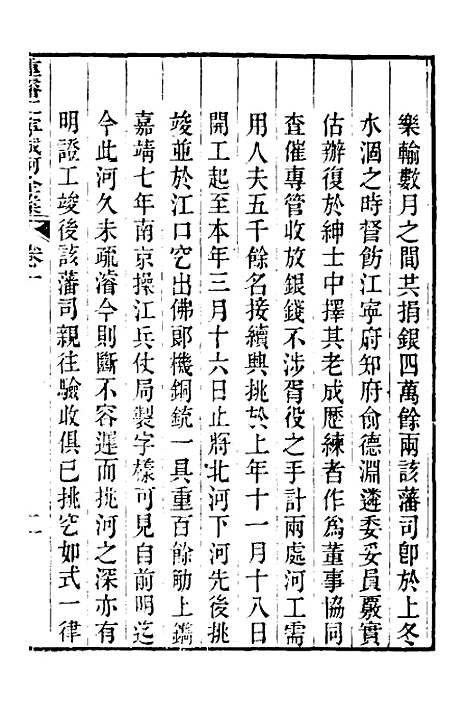 樂輸數月之間共捐銀四萬餘兩該藩司卽於上冬
水涸之時督飭江寧府知府俞德淵遴委妥員覈實
估辦復於紳士中擇其老成歷練者作爲董事協同
查催專管收放銀錢不涉胥役之手計兩處河工需
用人夫五千餘名接續興挑於上年十一月十八日
開工起至本年三月十六日止將北河下河先後挑
竣並於江口挖出佛郞機銅銃一具重百餘觔上鐫
嘉靖七年南京操江兵仗局製字樣可見自前明迄
今此河久未疏濬今則斷不容遲而挑河之深亦有
明證工竣後該藩司親往驗收俱已挑挖如式一律
重濬江寧城河全案 卷一 二